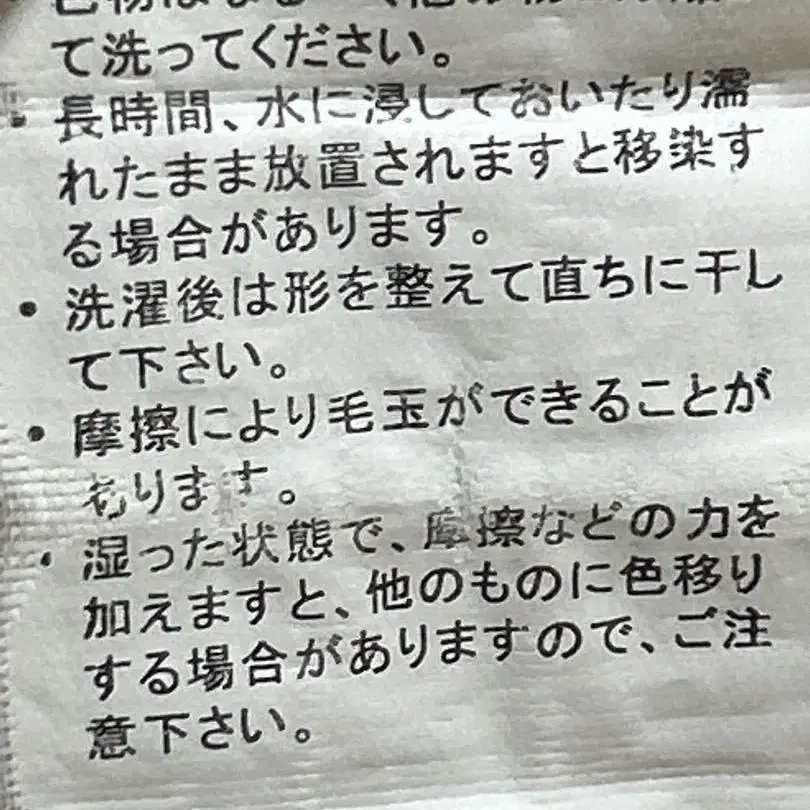 て洗ってください。
・長時間、水に浸しておいたり濡
れたまま放置されますと移染す
る場合があります。
・洗濯後は形を整えて直ちに干し
て下さい。
・摩擦により毛玉ができることが
あります。
・湿った状態で、摩擦などの力を
加えますと、他のものに色移り
する場合がありますので、ご注
意下さい。